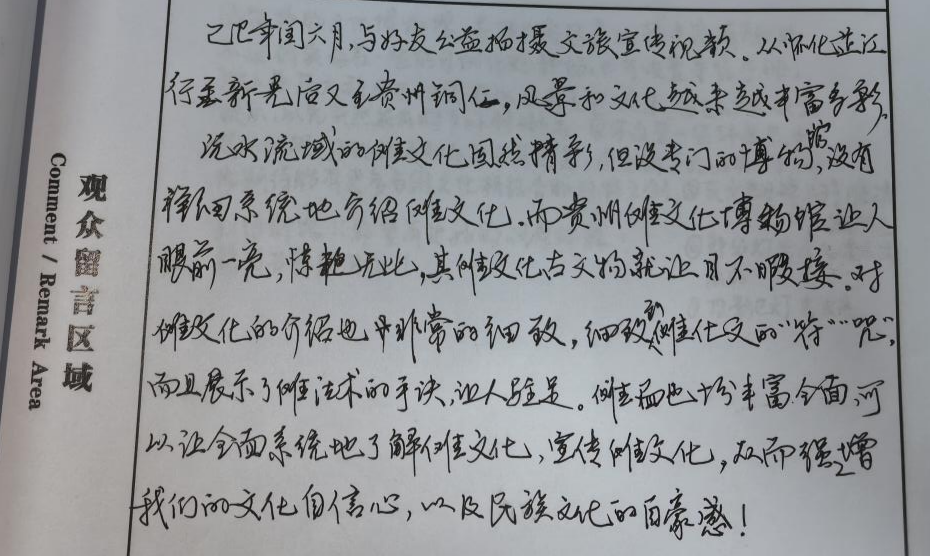 观众留言区域
Comment / Remark Area
己巳年闰六月,与好友公益拍摄文旅宣传视频。从怀化芷江
行至新晃后又至贵州铜仁,风景和文化越来越丰富多彩。
沅水流域的傩文化固然精彩,但没专门的博物馆,没有
详细系统地介绍傩文化。而贵州傩文化博物馆让人
眼前一亮,惊艳无比,其傩文化古文物就让目不暇接。对
傩文化的介绍也非常的细致,细致到傩仪文的“符”“咒”,
而且展示了傩法术的手诀,让人驻足。傩面也十分丰富全面,可
以让全面系统地了解傩文化,宣传傩文化,从而增强
我们的文化自信心,以及民族文化的自豪感!